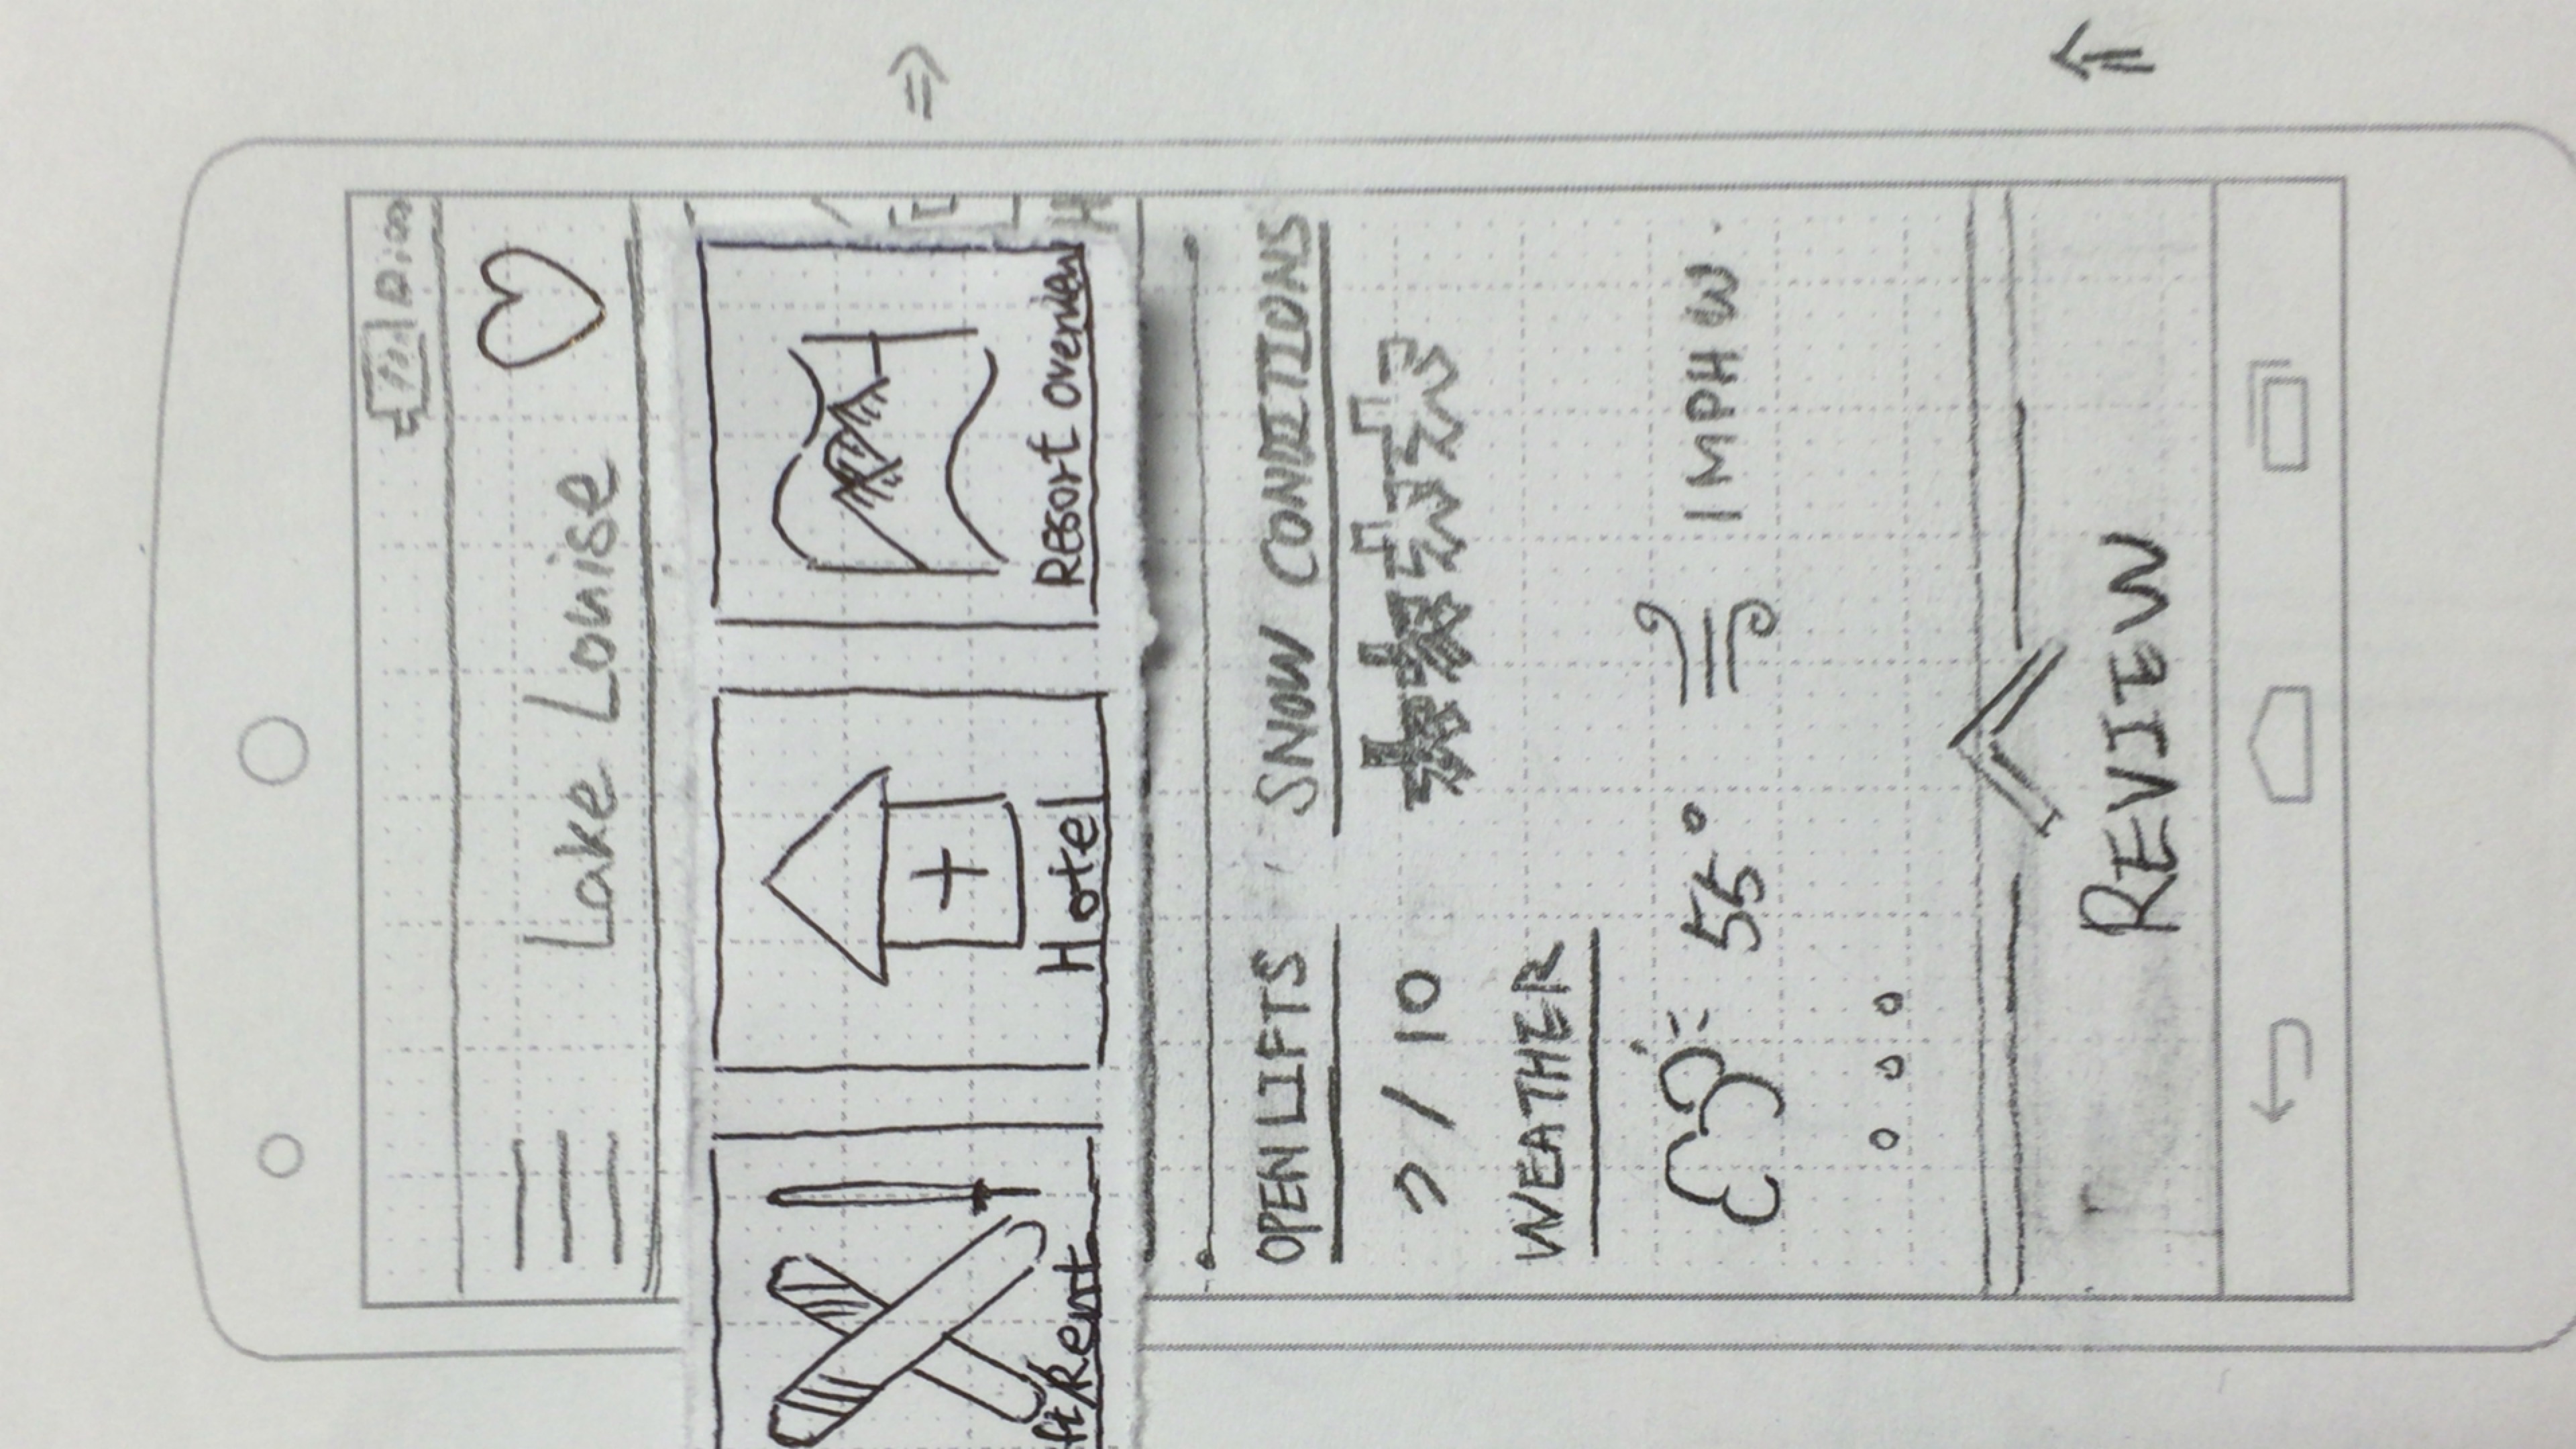 Lake Louise
ft/Rent
Hotel
Resort overview
OPEN LIFTS
SNOW CONDITIONS
/ 10
WEATHER
55°
1 MPH W
REVIEW